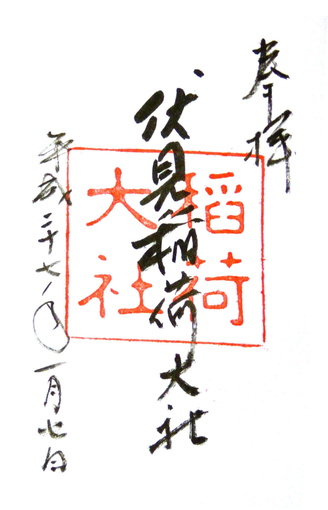 奉拝
伏見稲荷大社
稲荷
大社
平成二十七年一月七日